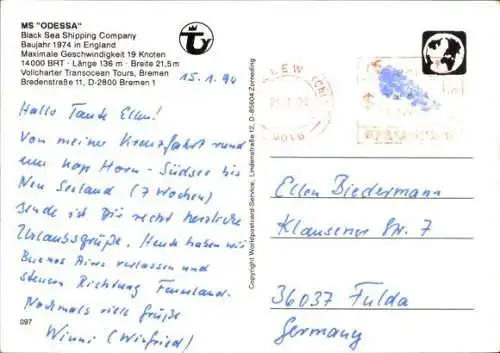 MS "ODESSA"
Black Sea Shipping Company
Baujahr 1974 in England
Maximale Geschwindigkeit 19 Knoten
14000 BRT · Länge 136 m · Breite 21,5 m
Vollcharter Transocean Tours, Bremen
Bredenstraße 11, D-2800 Bremen 1
15.1.94
Hallo Tante Ellen!
Von meiner Kreuzfahrt rund
um Kap Horn - Südsee bis
Neu Seeland (7 Wochen)
sende ich Dir recht herzliche
Urlaubsgrüße. Heute haben wir
Buenos Aires verlassen und
steuern Richtung Feuerland.
Nochmals viele Grüße
Winni (Winfried)
097
Copyright Worldpostcard-Service, Lindenstraße 12, D-85604 Zorneding
Ellen Biedermann
Klausener Str. 7
36037 Fulda
Germany